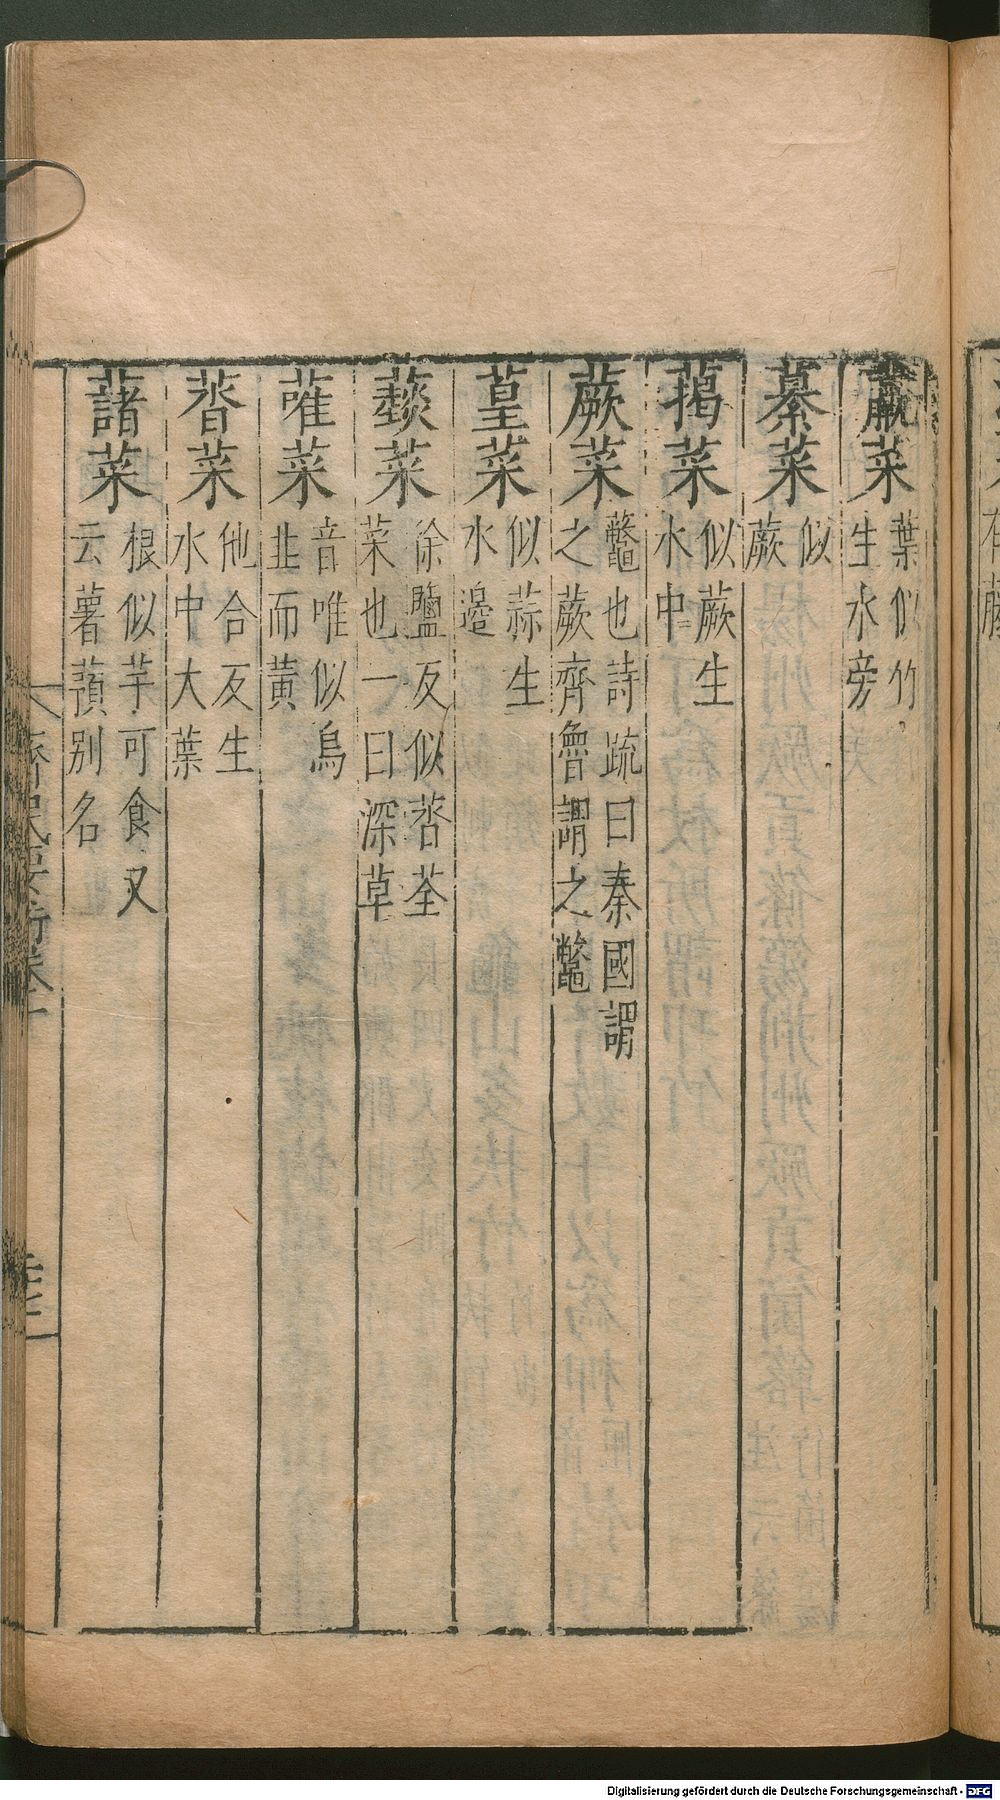 菜 葉似竹生水旁
綦菜 似蕨
藒菜 似蕨生水中
蕨菜 虌也詩疏曰秦國謂之蕨齊魯謂之虌
菫菜 似蒜生水邊
菜 徐鹽反似䓀荃菜也一曰深草
菜 音唯似烏韭而黃
菜 他合反生水中大葉
藷菜 根似芋可食又云薯蕷别名
齊民要術卷十
Digitalisierung gefördert durch die Deutsche Forschungsgemeinschaft - DFG